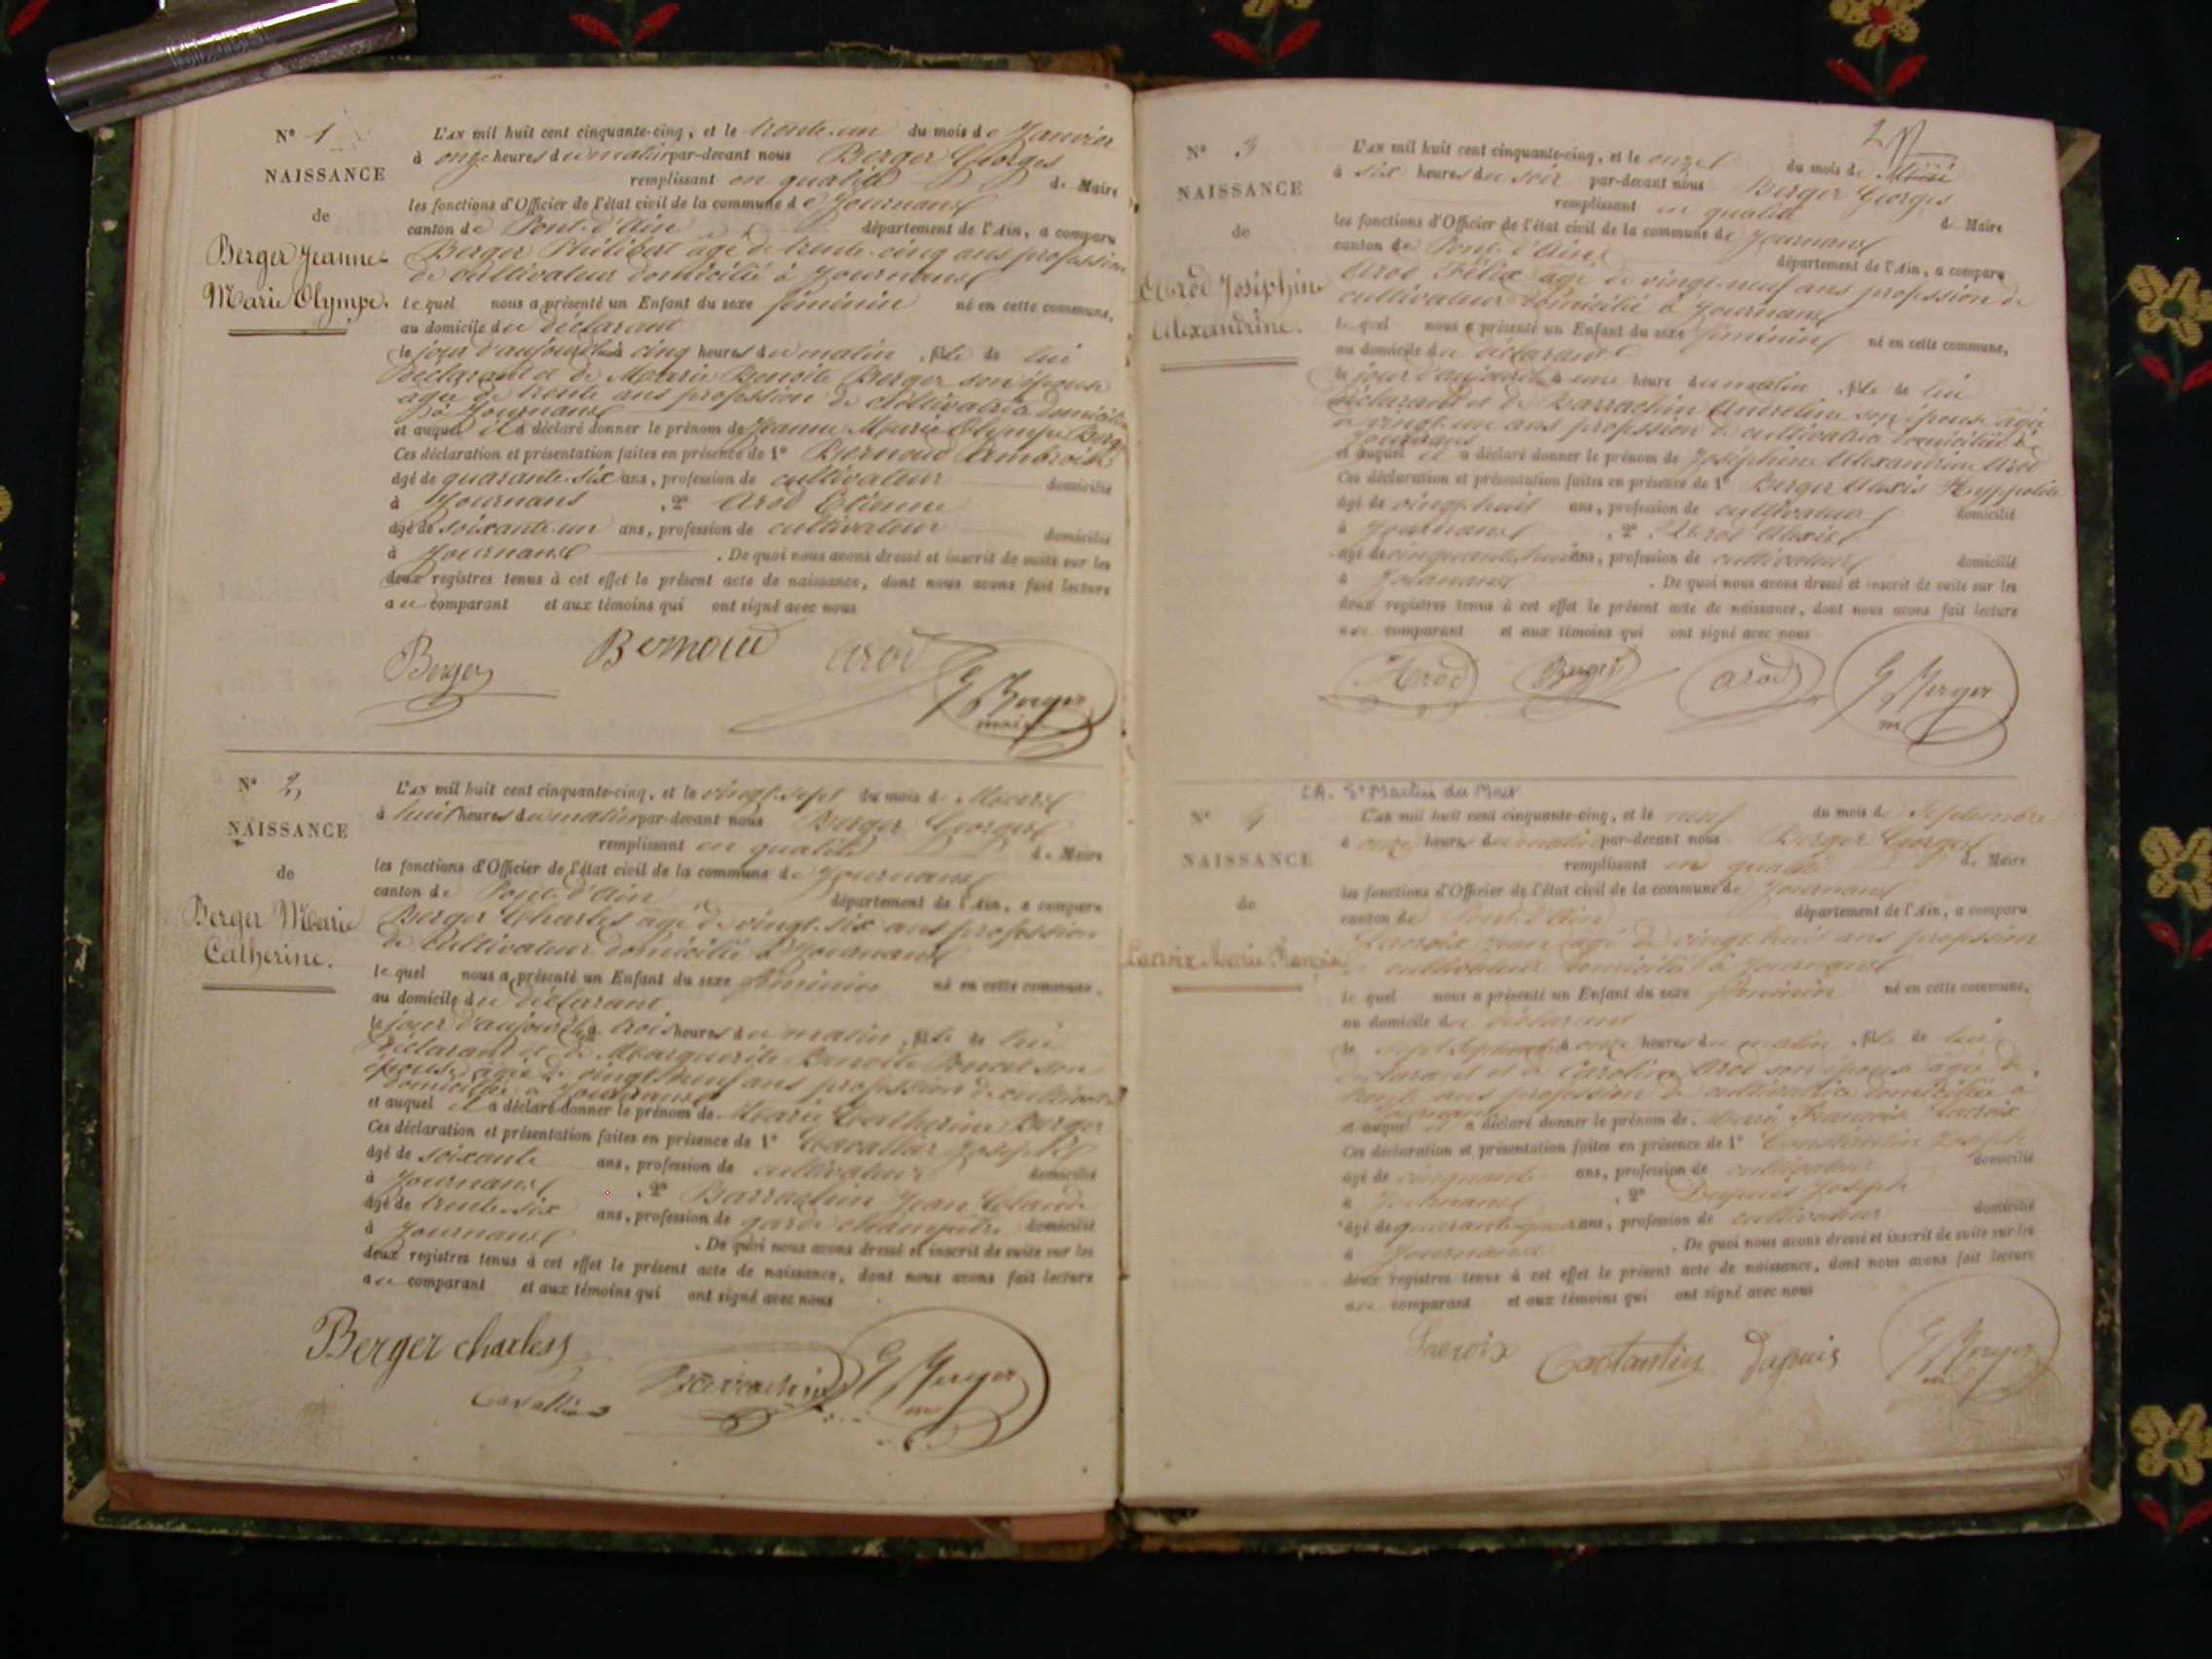 N° 1
NAISSANCE
de
Berger Jeanne
Marie Olympe.
L'AN mil huit cent cinquante-cinq, et le trente-un du mois de Janvier
à onze heures du matin par-devant nous Berger Georges
remplissant en qualité de Maire
les fonctions d'Officier de l'état civil de la commune de Journans
canton de Pont-d'Ain département de l'Ain, a comparu
Berger Philibert âgé de trente-cinq ans profession
de cultivateur domicilié à Journans
lequel nous a présenté un Enfant du sexe féminin né en cette commune,
au domicile du déclarant
le jour d'aujourd'hui à cinq heures du matin, fille de lui
déclarant et de Marie Benoite Berger son épouse
agée de trente ans profession de cultivatrice domiciliée
à Journans
et auquel il a déclaré donner le prénom de Jeanne Marie Olympe Berger
Ces déclaration et présentation faites en présence de 1° Bernoud Ambroise
âgé de quarante-six ans, profession de cultivateur domicilié
à Journans , 2° Arod Etienne
âgé de soixante-un ans, profession de cultivateur domicilié
à Journans . De quoi nous avons dressé et inscrit de suite sur les
deux registres tenus à cet effet le présent acte de naissance, dont nous avons fait lecture
au comparant et aux témoins qui ont signé avec nous
Berger Bernoud arod G Berger
maire
N° 2
NAISSANCE
de
Berger Marie
Catherine.
L'AN mil huit cent cinquante-cinq, et le vingt-sept du mois de Mars
à huit heures du matin par-devant nous Berger Georges
remplissant en qualité de Maire
les fonctions d'Officier de l'état civil de la commune de Journans
canton de Pont-d'Ain département de l'Ain, a comparu
Berger Charles âgé de vingt-six ans profession
de cultivateur domicilié à Journans
lequel nous a présenté un Enfant du sexe féminin né en cette commune,
au domicile du déclarant
le jour d'aujourd'hui à trois heures du matin, fille de lui
déclarant et de Marguerite Benoite Poncet son
épouse agée de vingt-neuf ans profession de cultivatrice
domiciliée à Journans
et auquel il a déclaré donner le prénom de Marie Catherine Berger
Ces déclaration et présentation faites en présence de 1° Cavallier Joseph
âgé de soixante ans, profession de cultivateur domicilié
à Journans , 2° Barrachin Jean Claude
âgé de trente-six ans, profession de garde champêtre domicilié
à Journans . De quoi nous avons dressé et inscrit de suite sur les
deux registres tenus à cet effet le présent acte de naissance, dont nous avons fait lecture
au comparant et aux témoins qui ont signé avec nous
Berger charles
Cavallier Barrachin G Berger
m
2
N° 3
NAISSANCE
de
Arod Joséphine
Alexandrine.
L'AN mil huit cent cinquante-cinq, et le onze du mois de
à six heures du soir par-devant nous Berger Georges
remplissant en qualité de Maire
les fonctions d'Officier de l'état civil de la commune de Journans
canton de Pont-d'Ain département de l'Ain, a comparu
Arod Félix âgé de vingt-neuf ans profession de
cultivateur domicilié à Journans
lequel nous a présenté un Enfant du sexe féminin né en cette commune,
au domicile du déclarant
le jour d'aujourd'hui à une heure du matin, fille de lui
déclarant et de Barrachin Andreline son épouse agée
de vingt-un ans profession de cultivatrice domiciliée à
Journans
et auquel il a déclaré donner le prénom de Joséphine Alexandrine Arod
Ces déclaration et présentation faites en présence de 1° Berger Alexis Hyppolite
âgé de vingt-huit ans, profession de cultivateur domicilié
à Journans , 2° Arod Alexis
âgé de cinquante-huit ans, profession de cultivateur domicilié
à Journans . De quoi nous avons dressé et inscrit de suite sur les
deux registres tenus à cet effet le présent acte de naissance, dont nous avons fait lecture
au comparant et aux témoins qui ont signé avec nous
Arod Berger arod G Berger
m
CA. St Martin du Mont
N° 4
NAISSANCE
de
Lacroix Marie Françoise
L'AN mil huit cent cinquante-cinq, et le neuf du mois de Septembre
à onze heures du matin par-devant nous Berger Georges
remplissant en qualité de Maire
les fonctions d'Officier de l'état civil de la commune de Journans
canton de Pont-d'Ain département de l'Ain, a comparu
Lacroix Jean âgé de vingt-huit ans profession
de cultivateur domicilié à Journans
lequel nous a présenté un Enfant du sexe féminin né en cette commune,
au domicile du déclarant
le sept Septembre à onze heures du matin, fille de lui
déclarant et de Caroline Arod son épouse agée de
trente ans profession de cultivatrice domiciliée à
Journans
et auquel il a déclaré donner le prénom de Marie Françoise Lacroix
Ces déclaration et présentation faites en présence de 1° Constantin Joseph
âgé de cinquante ans, profession de cultivateur domicilié
à Journans , 2° Dupuis Joseph
âgé de ans, profession de cultivateur domicilié
à Journans . De quoi nous avons dressé et inscrit de suite sur les
deux registres tenus à cet effet le présent acte de naissance, dont nous avons fait lecture
au comparant et aux témoins qui ont signé avec nous
Lacroix Constantin Dupuis G Berger
m